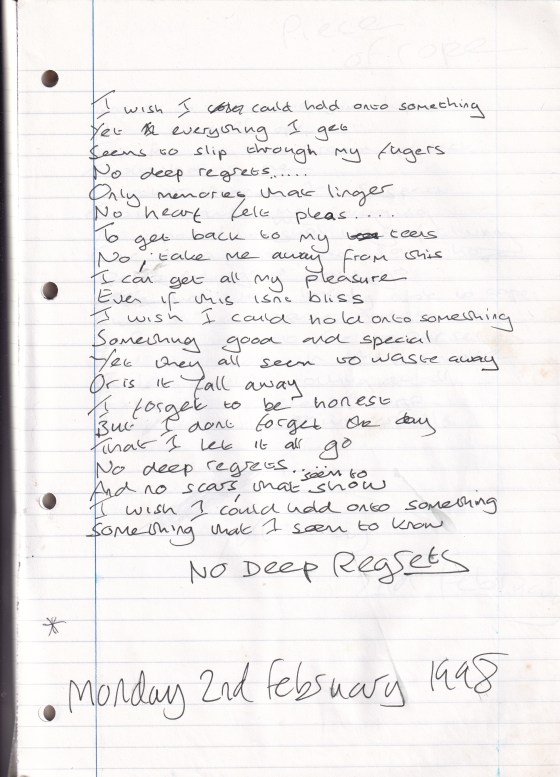 I wish I could hold onto something
Yet everything I get
Seems to slip through my fingers
No deep regrets.....
Only memories that linger
No heart felt pleas....
To get back to my teens
No, take me away from this
I can get all my pleasure
Even if this isnt bliss
I wish I could hold onto something
Something good and special
Yet they all seem to waste away
Or is it fall away
I forget to be honest
But I dont forget the day
That I let it all go
No deep regrets...
And no scars, that seem to show
I wish I could hold onto something
Something that I seem to know
No Deep Regrets
*
Monday 2nd February 1998